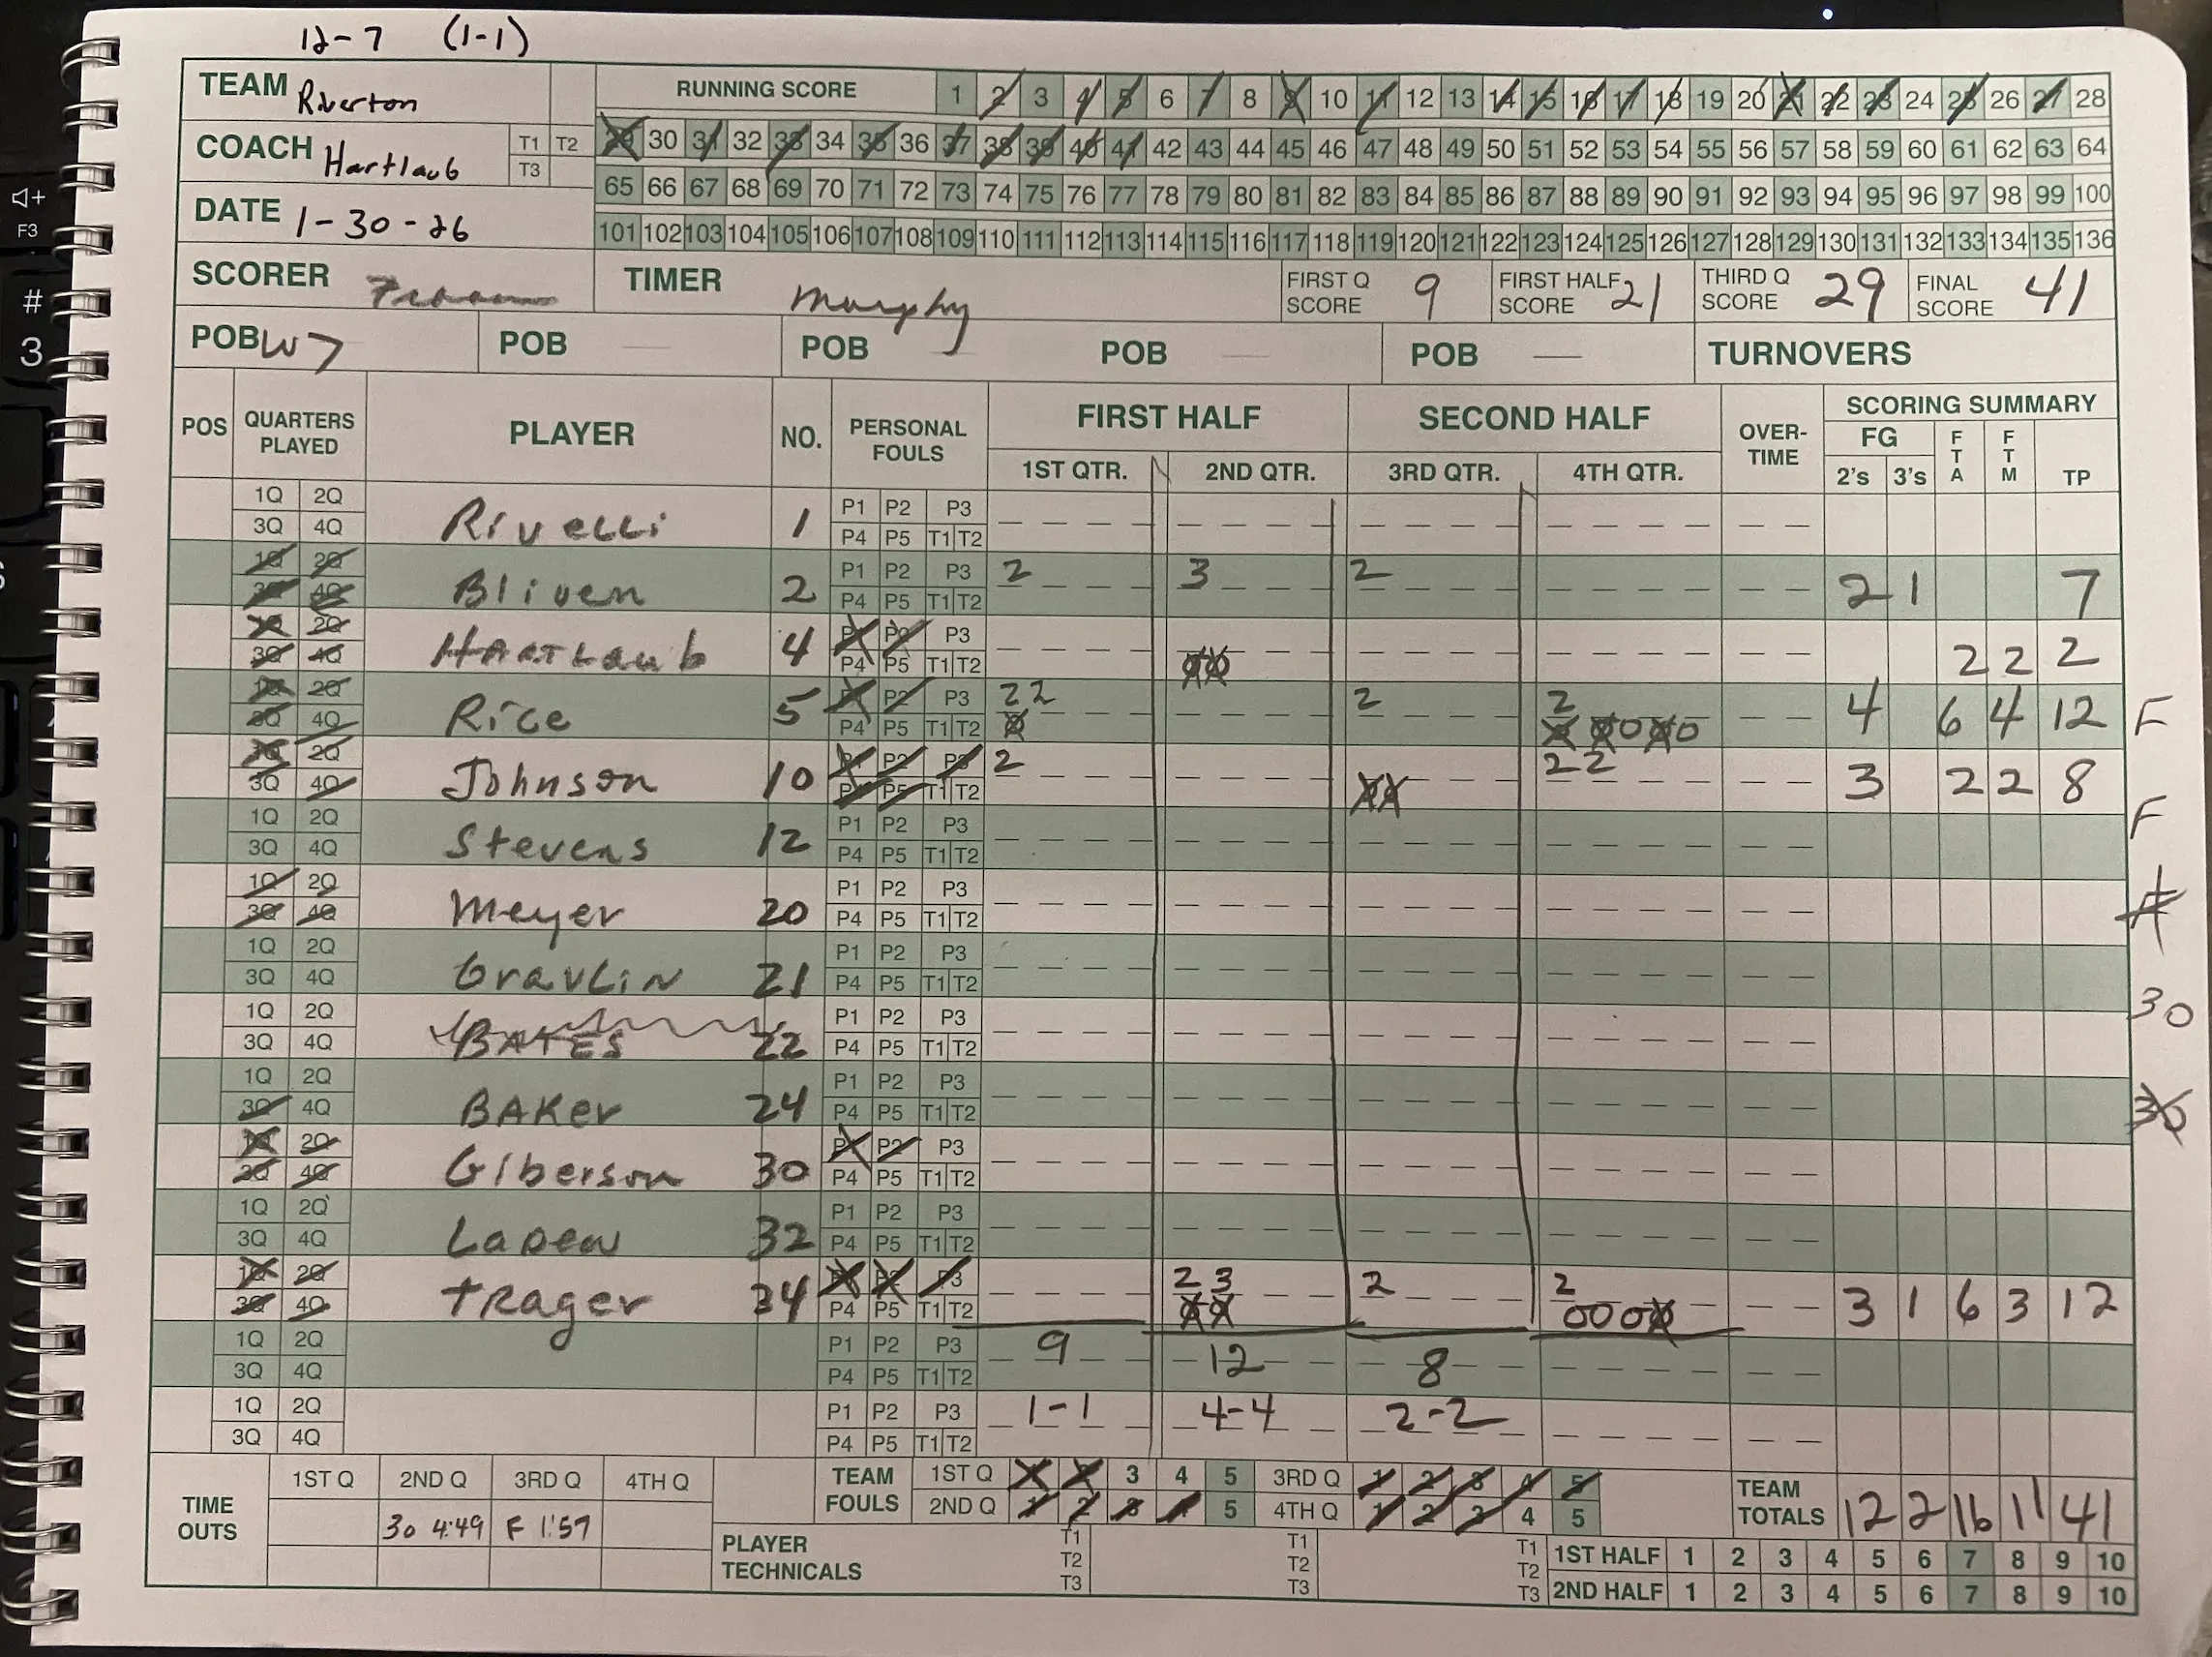 12-7 (1-1)
TEAM Riverton
RUNNING SCORE 1 2 3 4 5 6 7 8 9 10 11 12 13 14 15 16 17 18 19 20 21 22 23 24 25 26 27 28
COACH Hartlaub T1 T2 T3
29 30 31 32 33 34 35 36 37 38 39 40 41 42 43 44 45 46 47 48 49 50 51 52 53 54 55 56 57 58 59 60 61 62 63 64
65 66 67 68 69 70 71 72 73 74 75 76 77 78 79 80 81 82 83 84 85 86 87 88 89 90 91 92 93 94 95 96 97 98 99 100
DATE 1-30-26
101 102 103 104 105 106 107 108 109 110 111 112 113 114 115 116 117 118 119 120 121 122 123 124 125 126 127 128 129 130 131 132 133 134 135 136
SCORER
TIMER Murphy
FIRST Q SCORE 9
FIRST HALF SCORE 21
THIRD Q SCORE 29
FINAL SCORE 41
POB W7 POB POB POB POB TURNOVERS
POS QUARTERS PLAYED PLAYER NO. PERSONAL FOULS FIRST HALF SECOND HALF OVER-TIME SCORING SUMMARY
1ST QTR. 2ND QTR. 3RD QTR. 4TH QTR. FG 2's 3's FTA FTM TP
1Q 2Q Rivelli 1 P1 P2 P3
3Q 4Q P4 P5 T1 T2
1Q 2Q Bliven 2 P1 P2 P3 2 3 2 2 1 7
3Q 4Q P4 P5 T1 T2
1Q 2Q Hartlaub 4 P1 P2 P3 2 2 2
3Q 4Q P4 P5 T1 T2
1Q 2Q Rice 5 P1 P2 P3 2 2 2 2 4 6 4 12 F
3Q 4Q P4 P5 T1 T2
1Q 2Q Johnson 10 P1 P2 P3 2 2 2 3 2 2 8
3Q 4Q P4 P5 T1 T2 F
1Q 2Q Stevens 12 P1 P2 P3
3Q 4Q P4 P5 T1 T2
1Q 2Q Meyer 20 P1 P2 P3
3Q 4Q P4 P5 T1 T2
1Q 2Q Gravlin 21 P1 P2 P3
3Q 4Q P4 P5 T1 T2
1Q 2Q BATES 22 P1 P2 P3 30
3Q 4Q P4 P5 T1 T2
1Q 2Q BAKer 24 P1 P2 P3 30
3Q 4Q P4 P5 T1 T2
1Q 2Q Giberson 30 P1 P2 P3
3Q 4Q P4 P5 T1 T2
1Q 2Q Ladew 32 P1 P2 P3
3Q 4Q P4 P5 T1 T2
1Q 2Q Trager 34 P1 P2 P3 2 3 2 2 3 1 6 3 12
3Q 4Q P4 P5 T1 T2
1Q 2Q P1 P2 P3 9 12 8
3Q 4Q P4 P5 T1 T2
1Q 2Q P1 P2 P3 1-1 4-4 2-2
3Q 4Q P4 P5 T1 T2
TIME OUTS 1ST Q 2ND Q 3RD Q 4TH Q
30 4:49 F 1:57
TEAM FOULS 1ST Q 1 2 3 4 5 3RD Q 1 2 3 4 5
2ND Q 1 2 3 4 5 4TH Q 1 2 3 4 5
TEAM TOTALS 12 2 16 11 41
PLAYER TECHNICALS T1 T2 T3 T1 T2 T3 T1 T2 T3
1ST HALF 1 2 3 4 5 6 7 8 9 10
2ND HALF 1 2 3 4 5 6 7 8 9 10
F3
#
3